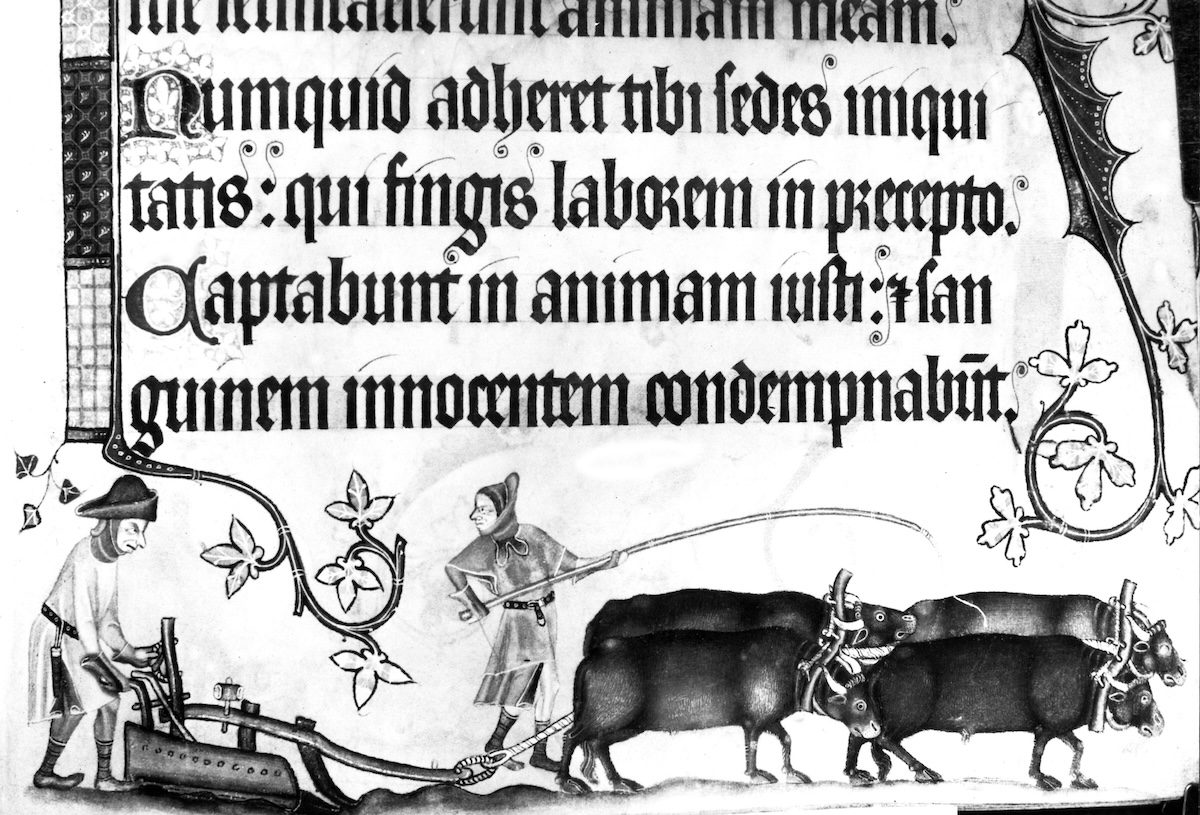 me letificauerunt animam meam.
Numquid adheret tibi sedes iniqui
tatis: qui fingis laborem in precepto.
Captabunt in animam iusti: ⁊ san
guinem innocentem condempnabūt.